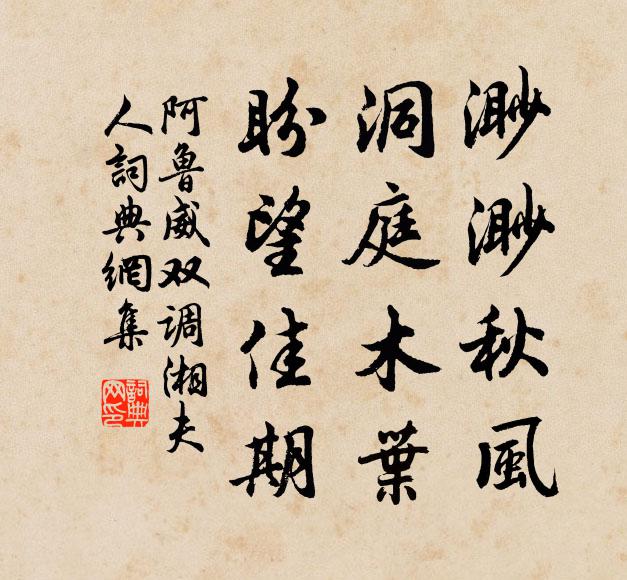 渺渺秋風
洞庭木葉
盼望佳期
阿魯威双调湘夫
人詞典網集
詞典
网印